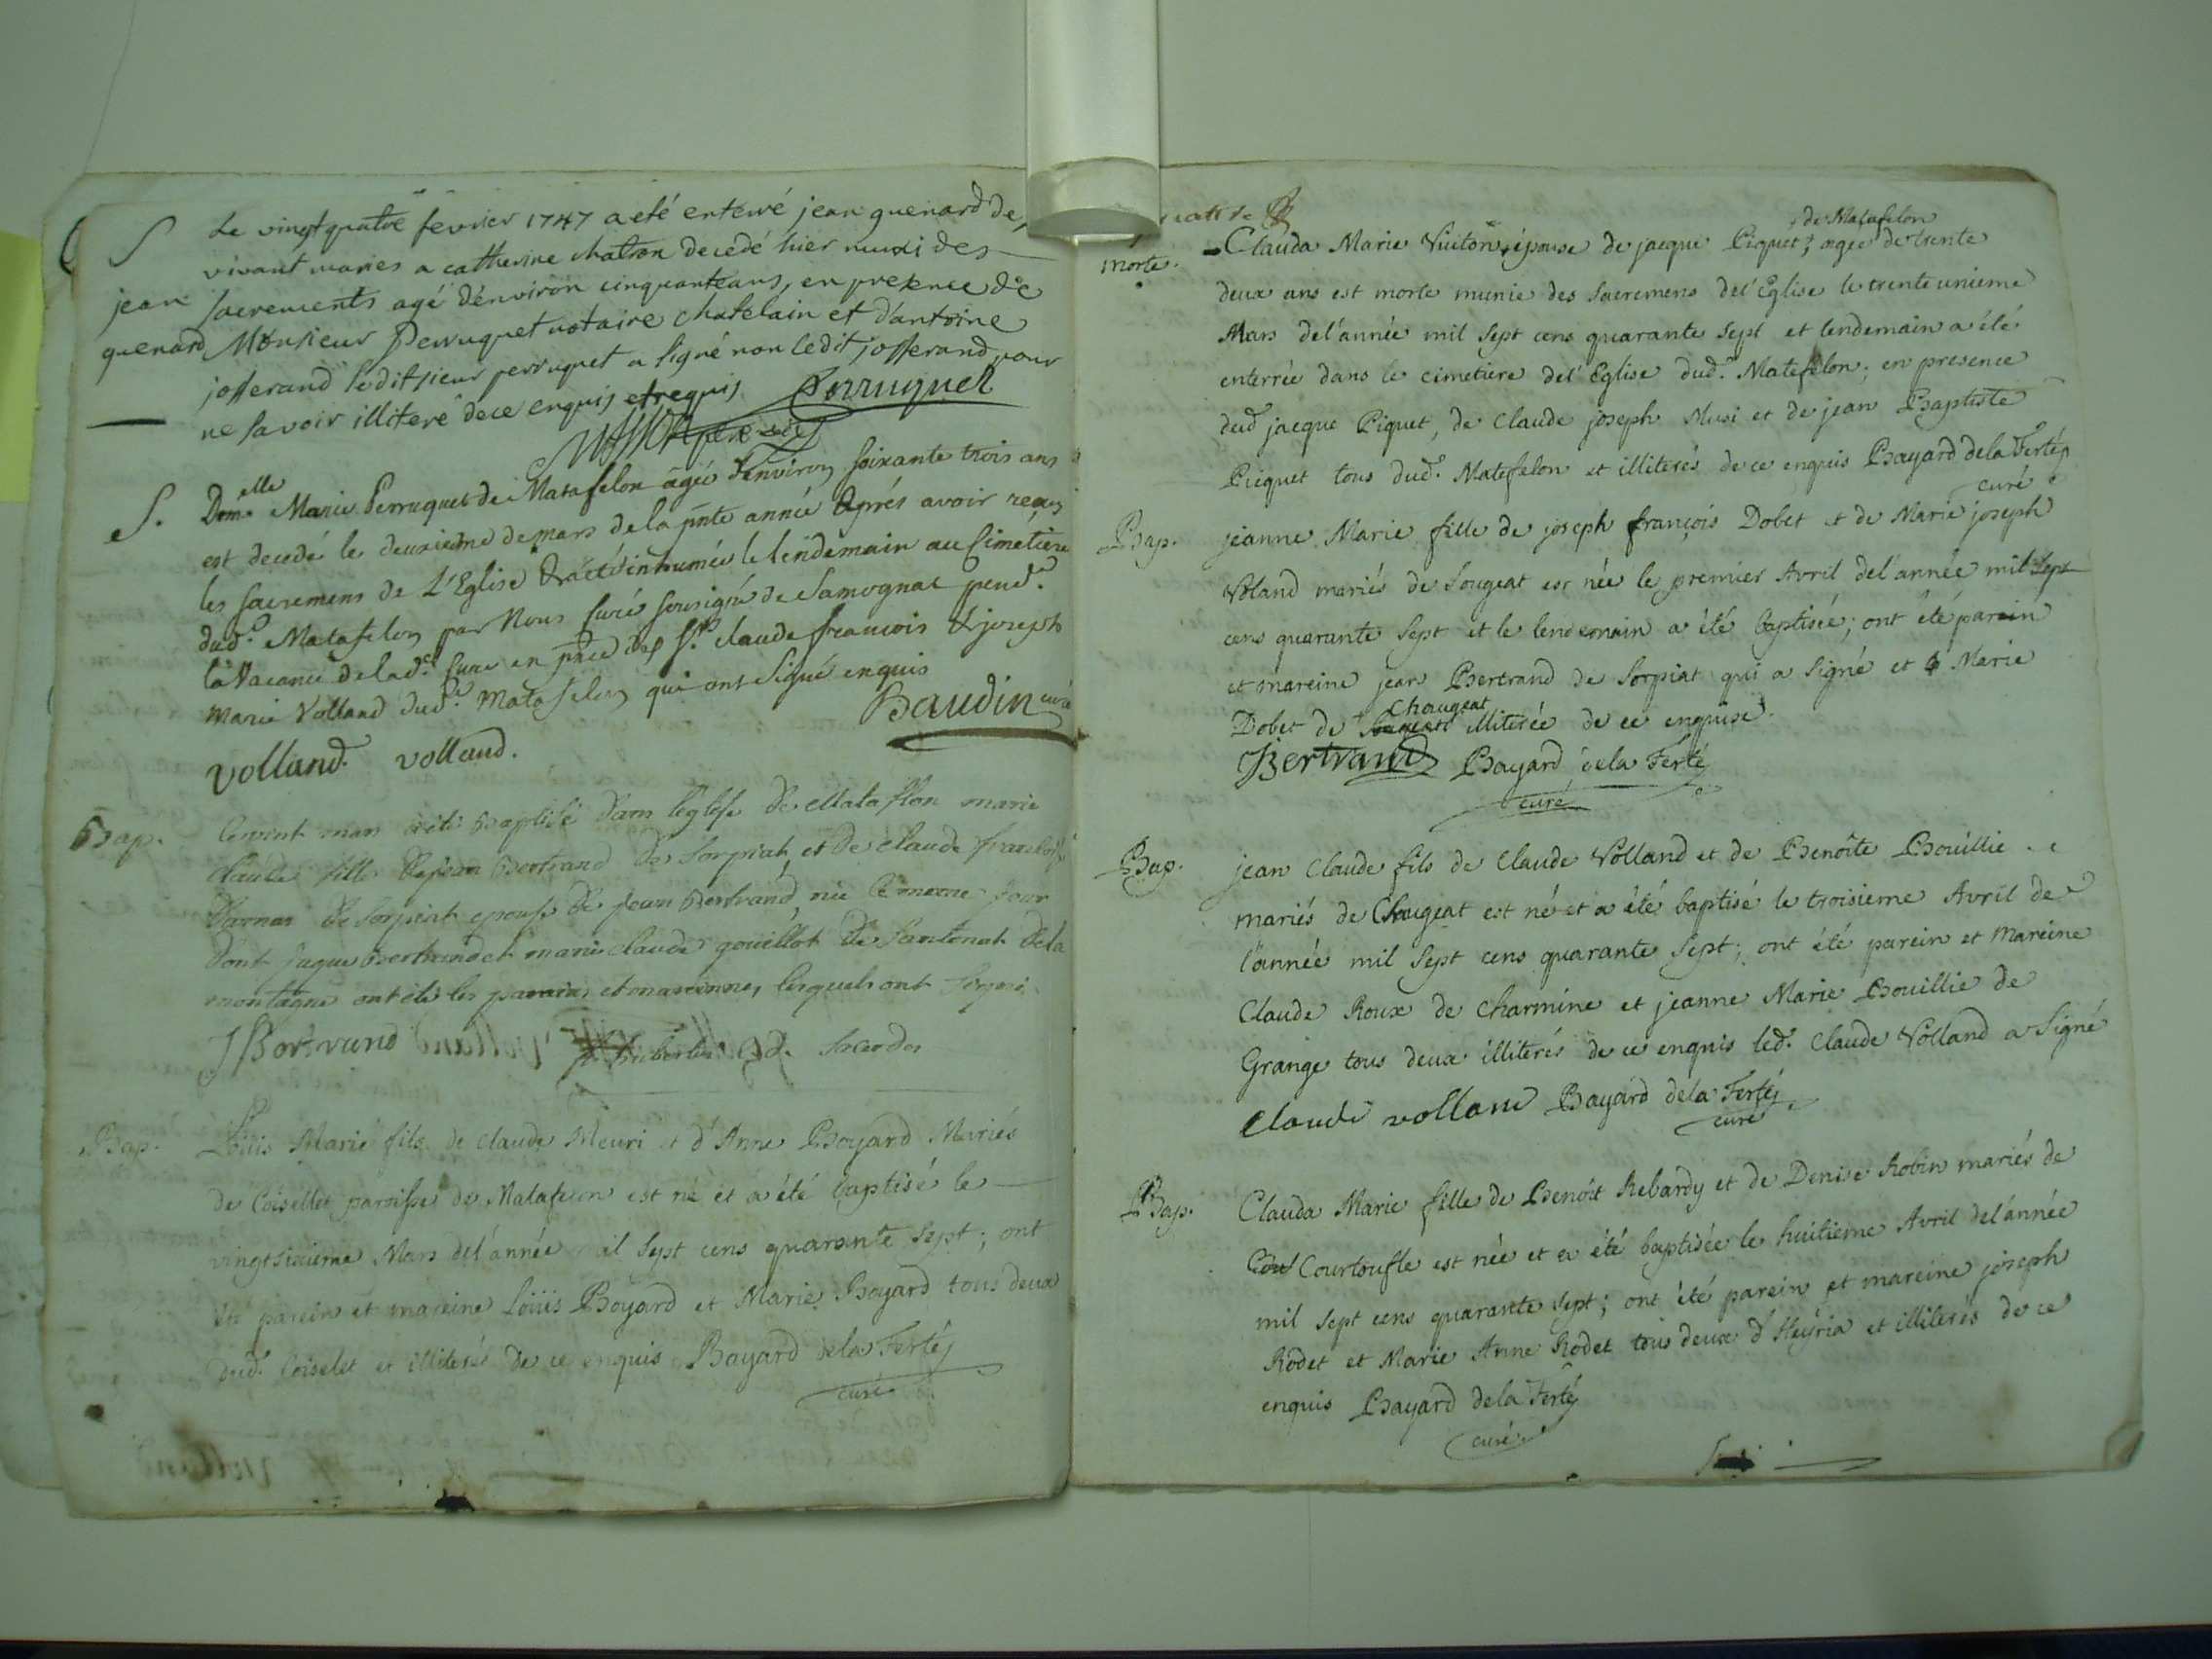 S Le vingt quatre fevrier 1747 a eté enterré jean guenard de,
vivant mariés a catherine chatron decedé hier muni des
jean sacrements agé d'environ cinquante ans, en presence de
guenard Monsieur Perruquet notaire chatelain et d'antoine
josserand le dit sieur perruquet a signé non le dit josserand pour
ne savoir illiteré de ce enquis et requis Perruquet
S. Dem.elle Marie Perruquet de Matafelon agée d'environ soixante trois ans
est decedé le deuxieme de mars de la pnte année Aprés avoir reçus
les sacremens de L'Eglise & a été inhumée le lendemain au Cimetiere
dud.t Matafelon par Nous Curé soussigné de Samognat pend.t
la Vacance de lad.e Cure en pnce des Srs claude francois & joseph
marie Volland dud.t Matafelon qui ont signé enquis
Baudin curé
Volland. volland.
Bap. Le vint mars a été baptisé dans l'eglise de Mataflon marie
claude fille de jean Bertrand de Sorpiat et de claude francoise
de Sorpiat epouse de jean Bertrand née le meme jour
dont jaque Bertrand et marie claude gouillot de Santonat de la
montagne ont été les parains et maraines, lesquels ont signé
J Bertrand sacerdos
Bap. Loüis Marie fils de Claude Meuri et d'Anne Boyard Mariés
de Coisellet paroisse de Matafelon est né et a été baptisé le
vingt sixieme Mars de l'année mil Sept cens quarante Sept; ont
été parein et mareine Loüis Boyard et Marie Boyard tous deux
dud. Coiselet et illiterés de ce enquis Bayard de la Fertéj
curé
morte. Clauda Marie Vuiton épouse de jacque Piquet, de Matafelon agée de trente
deux ans est morte munie des Sacremens de l'Eglise le trente unieme
Mars de l'année mil Sept cens quarante Sept et lendemain a été
enterrée dans le cimetiere de l'Eglise dud.t Matefelon; en presence
dud jacque Piquet, de Claude joseph Musi et de jean Baptiste
Picquet tous dud.t Matefelon et illiterés de ce enquis Bayard de la Fertéj
curé
Bap. jeanne Marie fille de joseph françois Dobet et de Marie joseph
Voland mariés de Sougeat est née le premier Avril de l'année mil Sept
cens quarante Sept et le lendemain a été baptisée; ont été parein
et mareine jean Bertrand de Sorpiat qui a Signé et Marie
Dobet de Chougeat illiterée de ce enquise.
JBertrand Bayard de la Ferté
curé
Bap. jean Claude fils de Claude Volland et de Benoîte Bouillie
mariés de Chougeat est né et a été baptisé le troisieme Avril de
l'année mil Sept cens quarante Sept; ont été parein et Mareine
Claude Roux de Charmine et jeanne Marie Bouillie de
Grange tous deux illiterés de ce enquis led.t Claude Volland a Signé
claude volland Bayard de la Fertéj
curé
Bap. Clauda Marie fille de Benoît Rebardy et de Denise Robin mariés de
Cou Courtoufle est née et a été baptisée le huitieme Avril de l'année
mil Sept cens quarante Sept; ont été parein et mareine joseph
Rodet et Marie Anne Rodet tous deux d'Heyria et illiterés de ce
enquis Bayard de la Fertéj
curé